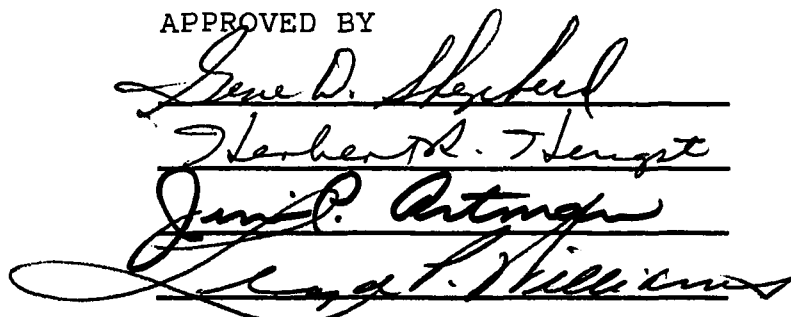 APPROVED BY
Gene D. Shepherd
Herbert R. Hengst
Jim P. Artman
Lloyd P. Williams